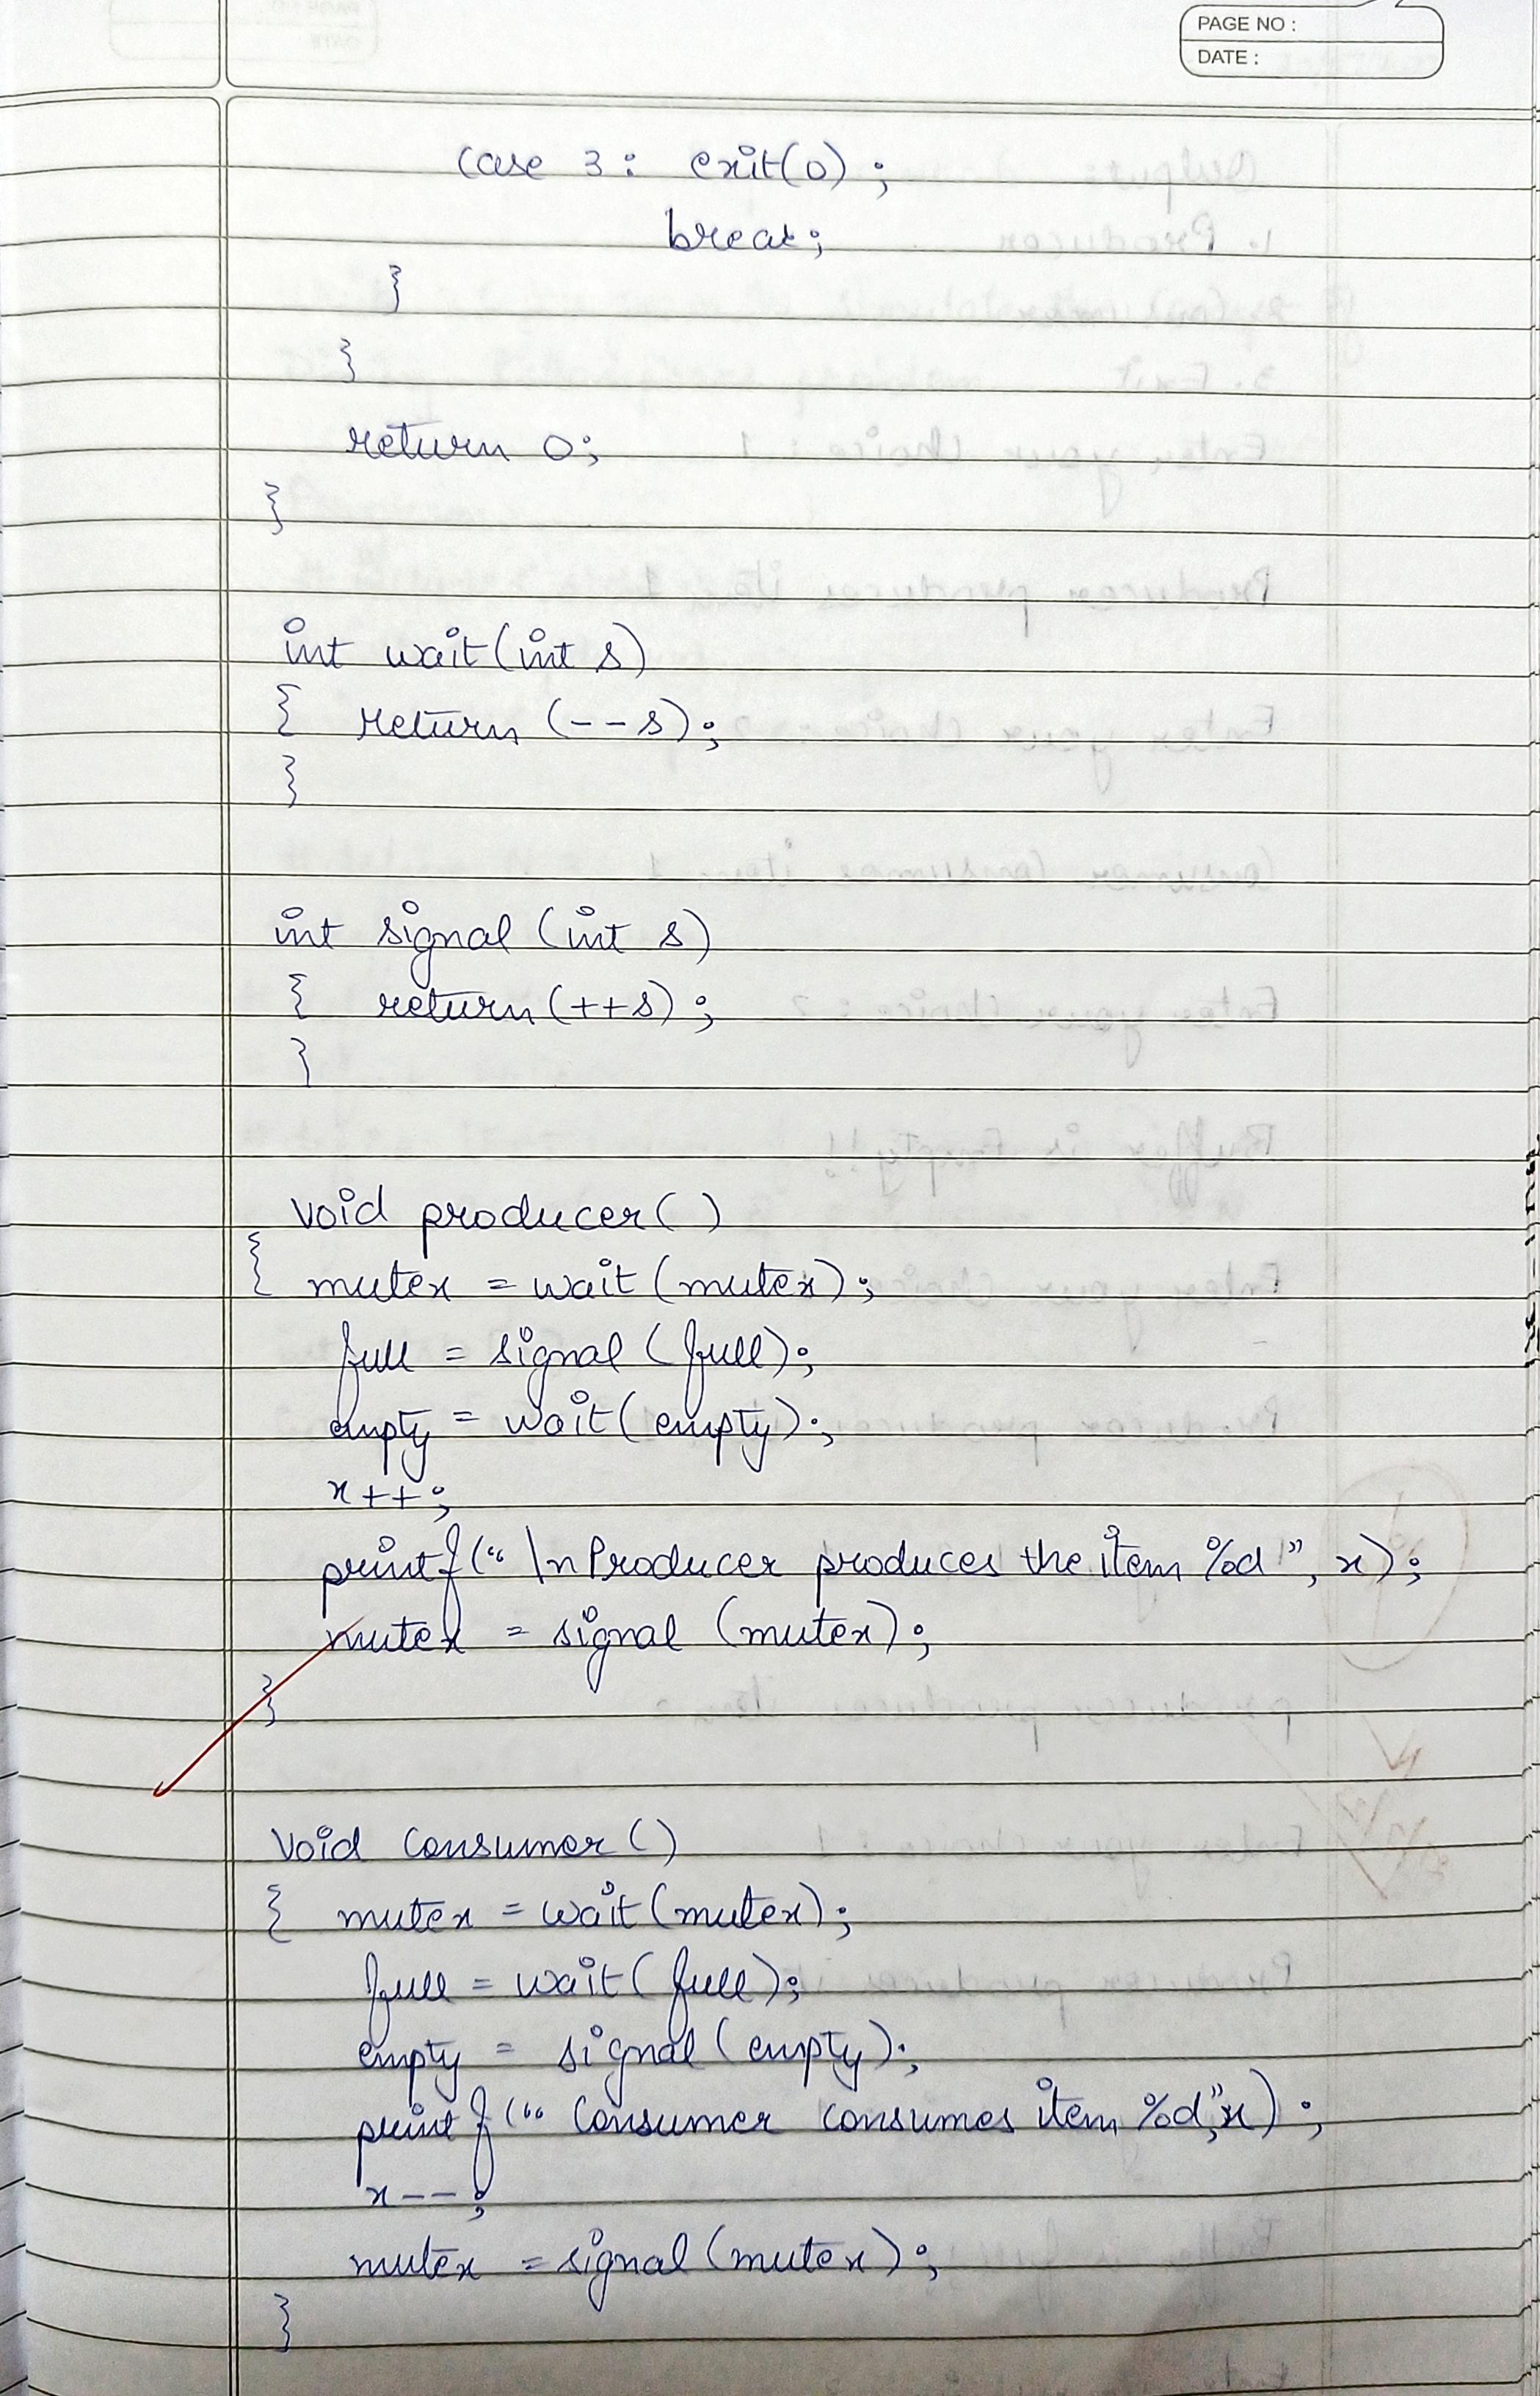 PAGE NO :
DATE :
case 3 : exit(0) ;
break;
}
}
return 0;
}
int wait(int s)
{ return (--s);
}
int signal (int s)
{ return (++s) ;
}
void producer( )
{ mutex = wait (mutex);
full = signal (full);
empty = wait( empty);
x++;
printf(“ \nProducer produces the item %d ”, x);
mutex = signal (mutex);
}
void consumer ( )
{ mutex = wait (mutex);
full = wait( full);
empty = signal ( empty);
printf (“ Consumer consumes item %d”,x) ;
x--;
mutex = signal (mutex) ;
}